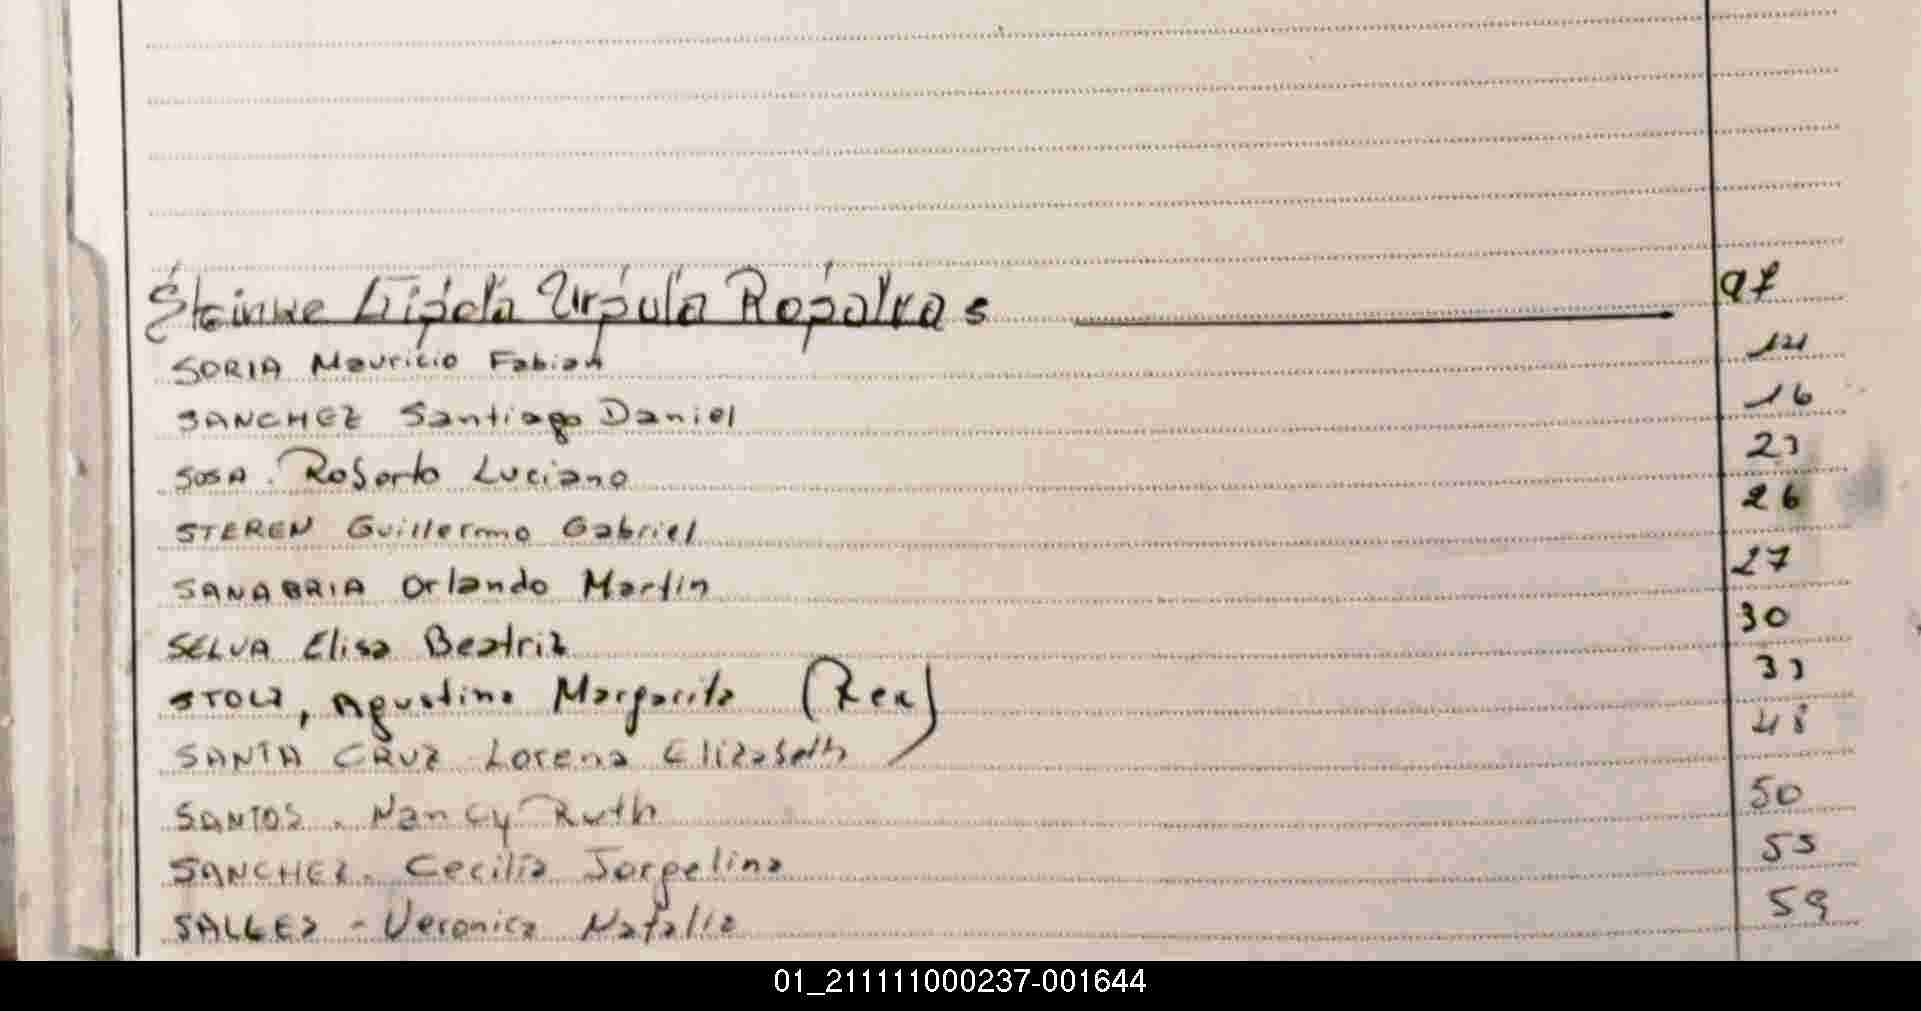 Steinke Gisela Ursula Rosalva s 97
SORIA Mauricio Fabian 14
SANCHEZ Santiago Daniel 16
SOSA. Roberto Luciano 23
STEREN Guillermo Gabriel 26
SANABRIA Orlando Martin 27
SELVA Elisa Beatriz 30
STOLZ, Agustina Margarita (Rea) 33
SANTA CRUZ Lorena Elizabeth 48
SANTOS. Nancy Ruth 50
SANCHEZ. Cecilia Jorgelina 55
SALLEZ - Veronica Natalia 59
01_211111000237-001644